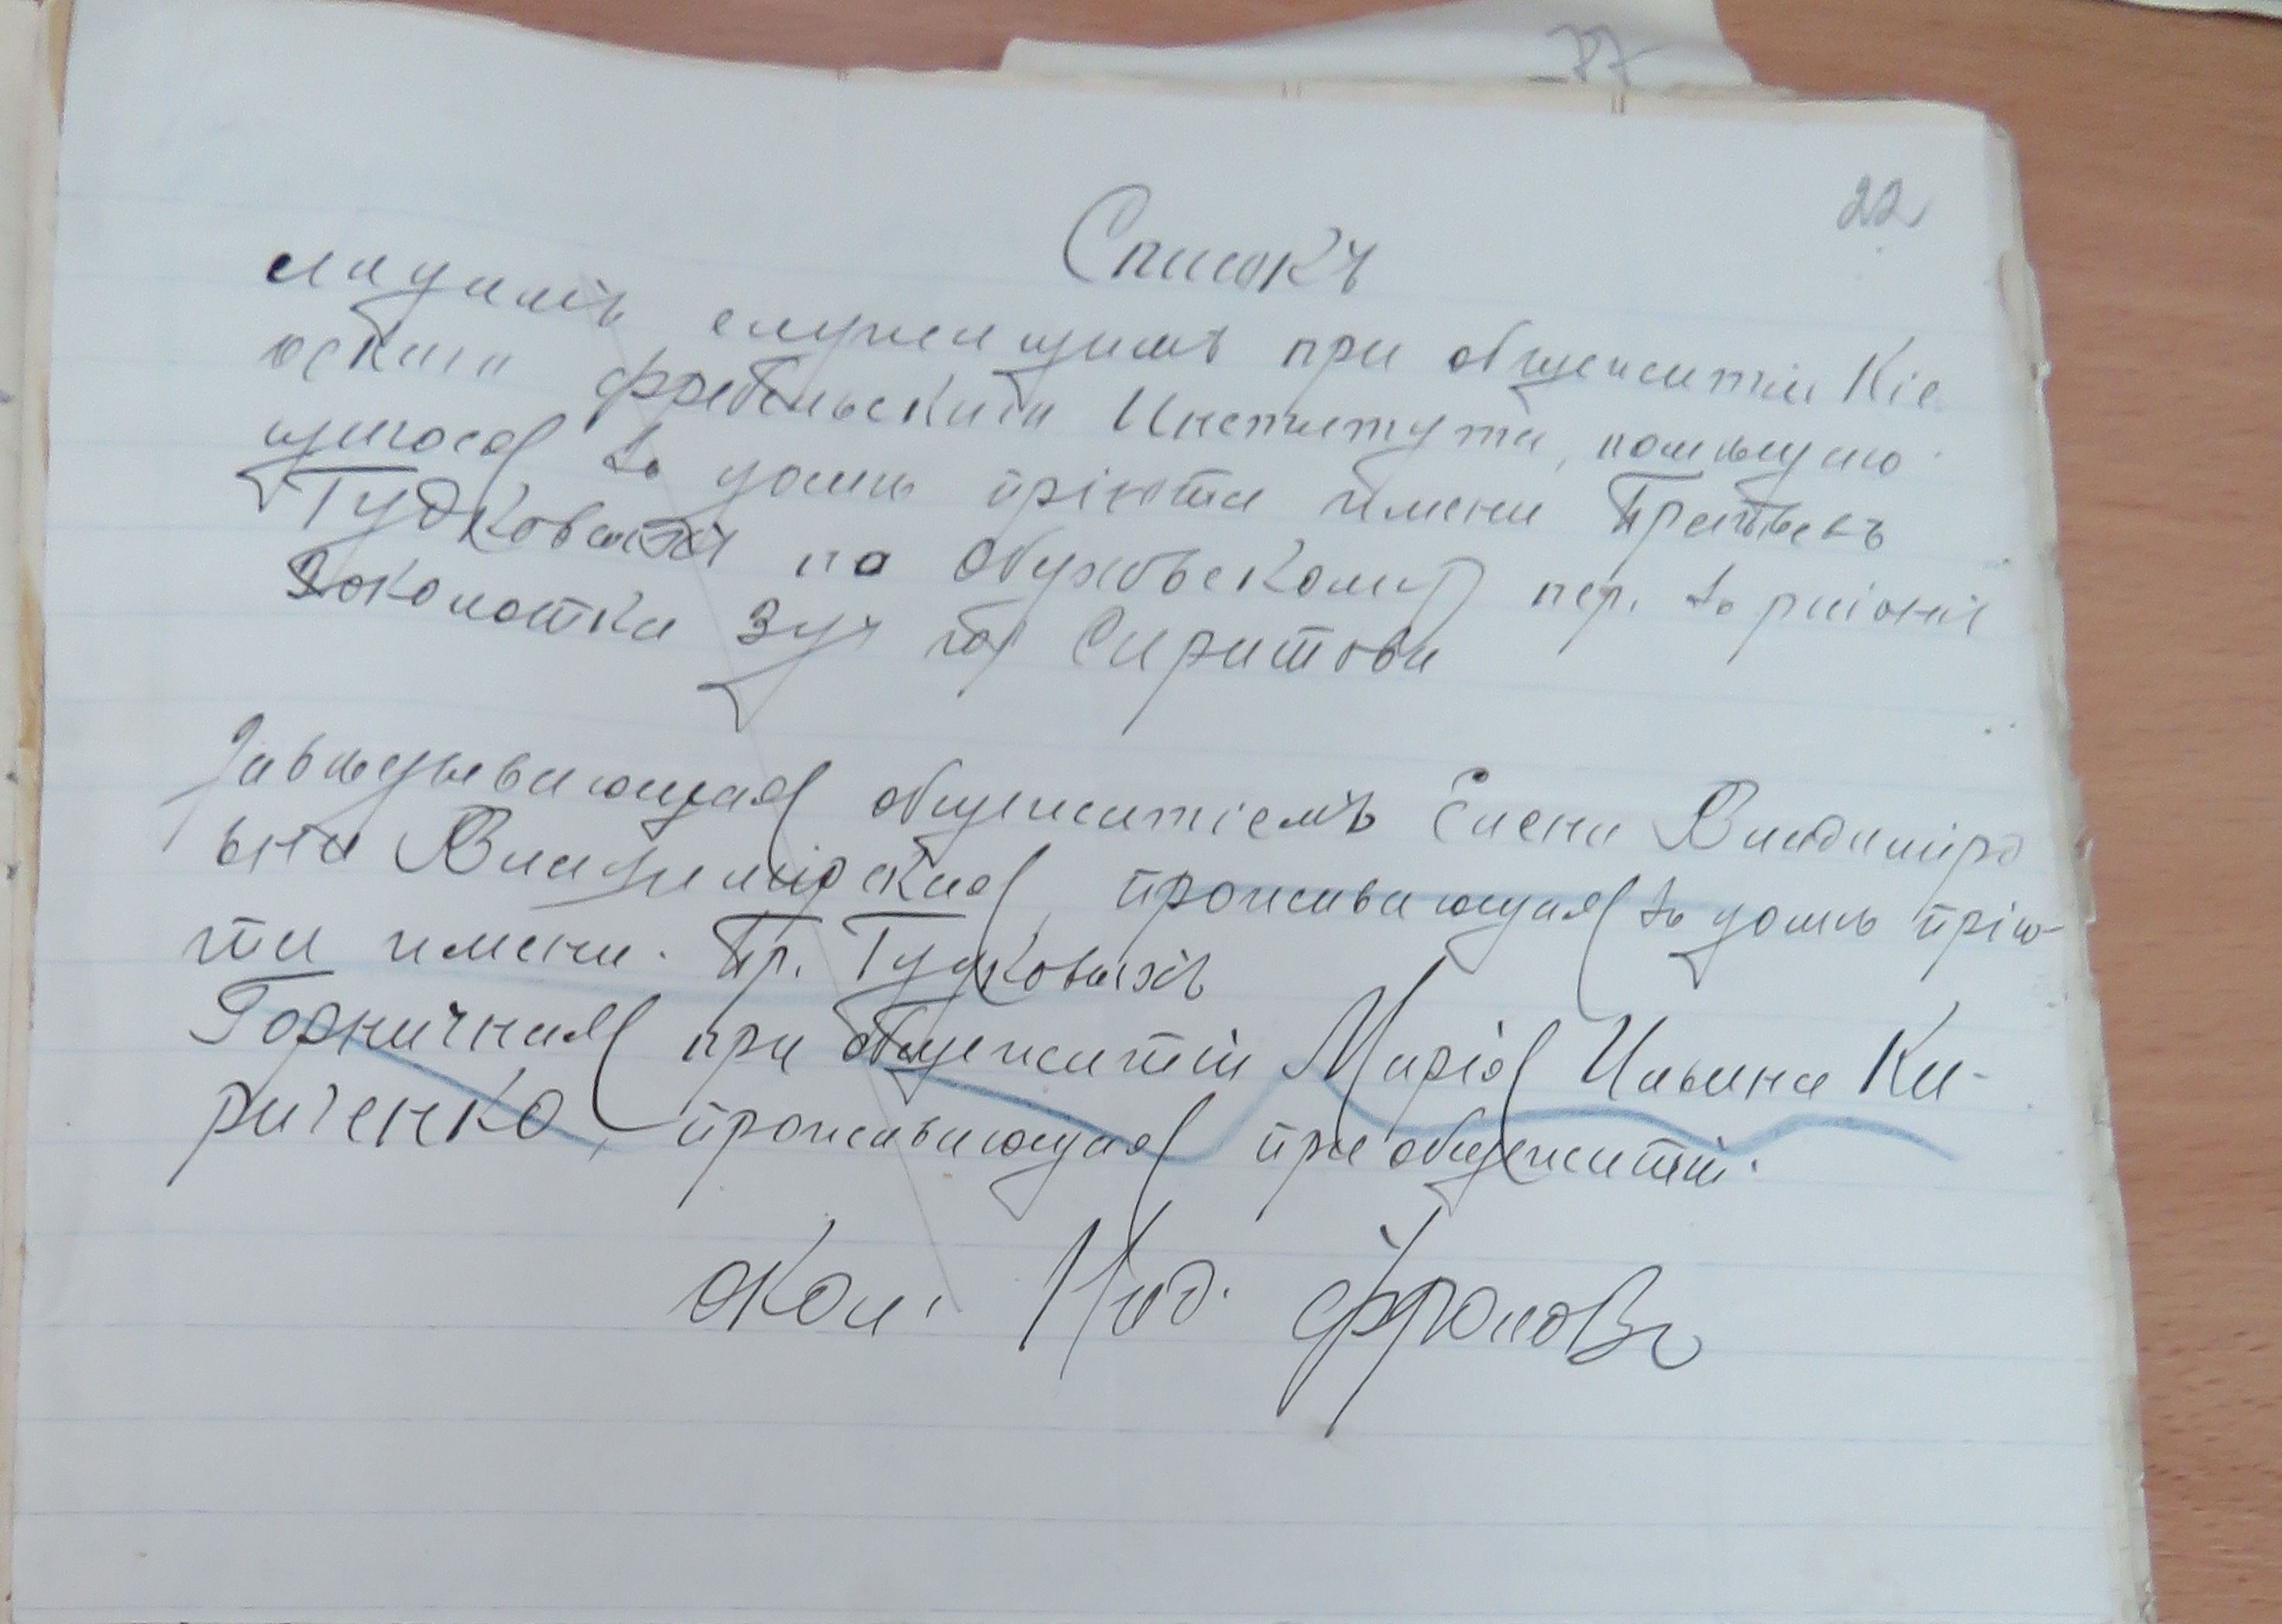 87
22
Списокъ
лицамъ служащимъ при общежитіи Кіе
вскаго Фребельскаго Института, помѣщаю
щагося въ домѣ пріюта имени Братьевъ
Гудковыхъ по Обуховскому пер. въ раіонѣ
околотка 3 уч гор Саратова
Завѣдывающая общежитіемъ Елена Владиміро
вна Владимірская, проживающая въ домѣ прію-
та имени. Бр. Гудковыхъ
Горничная при общежитіи Марія Ильина Ки-
риченко, проживающая при общежитіи.
Окол. Над. Фроловъ